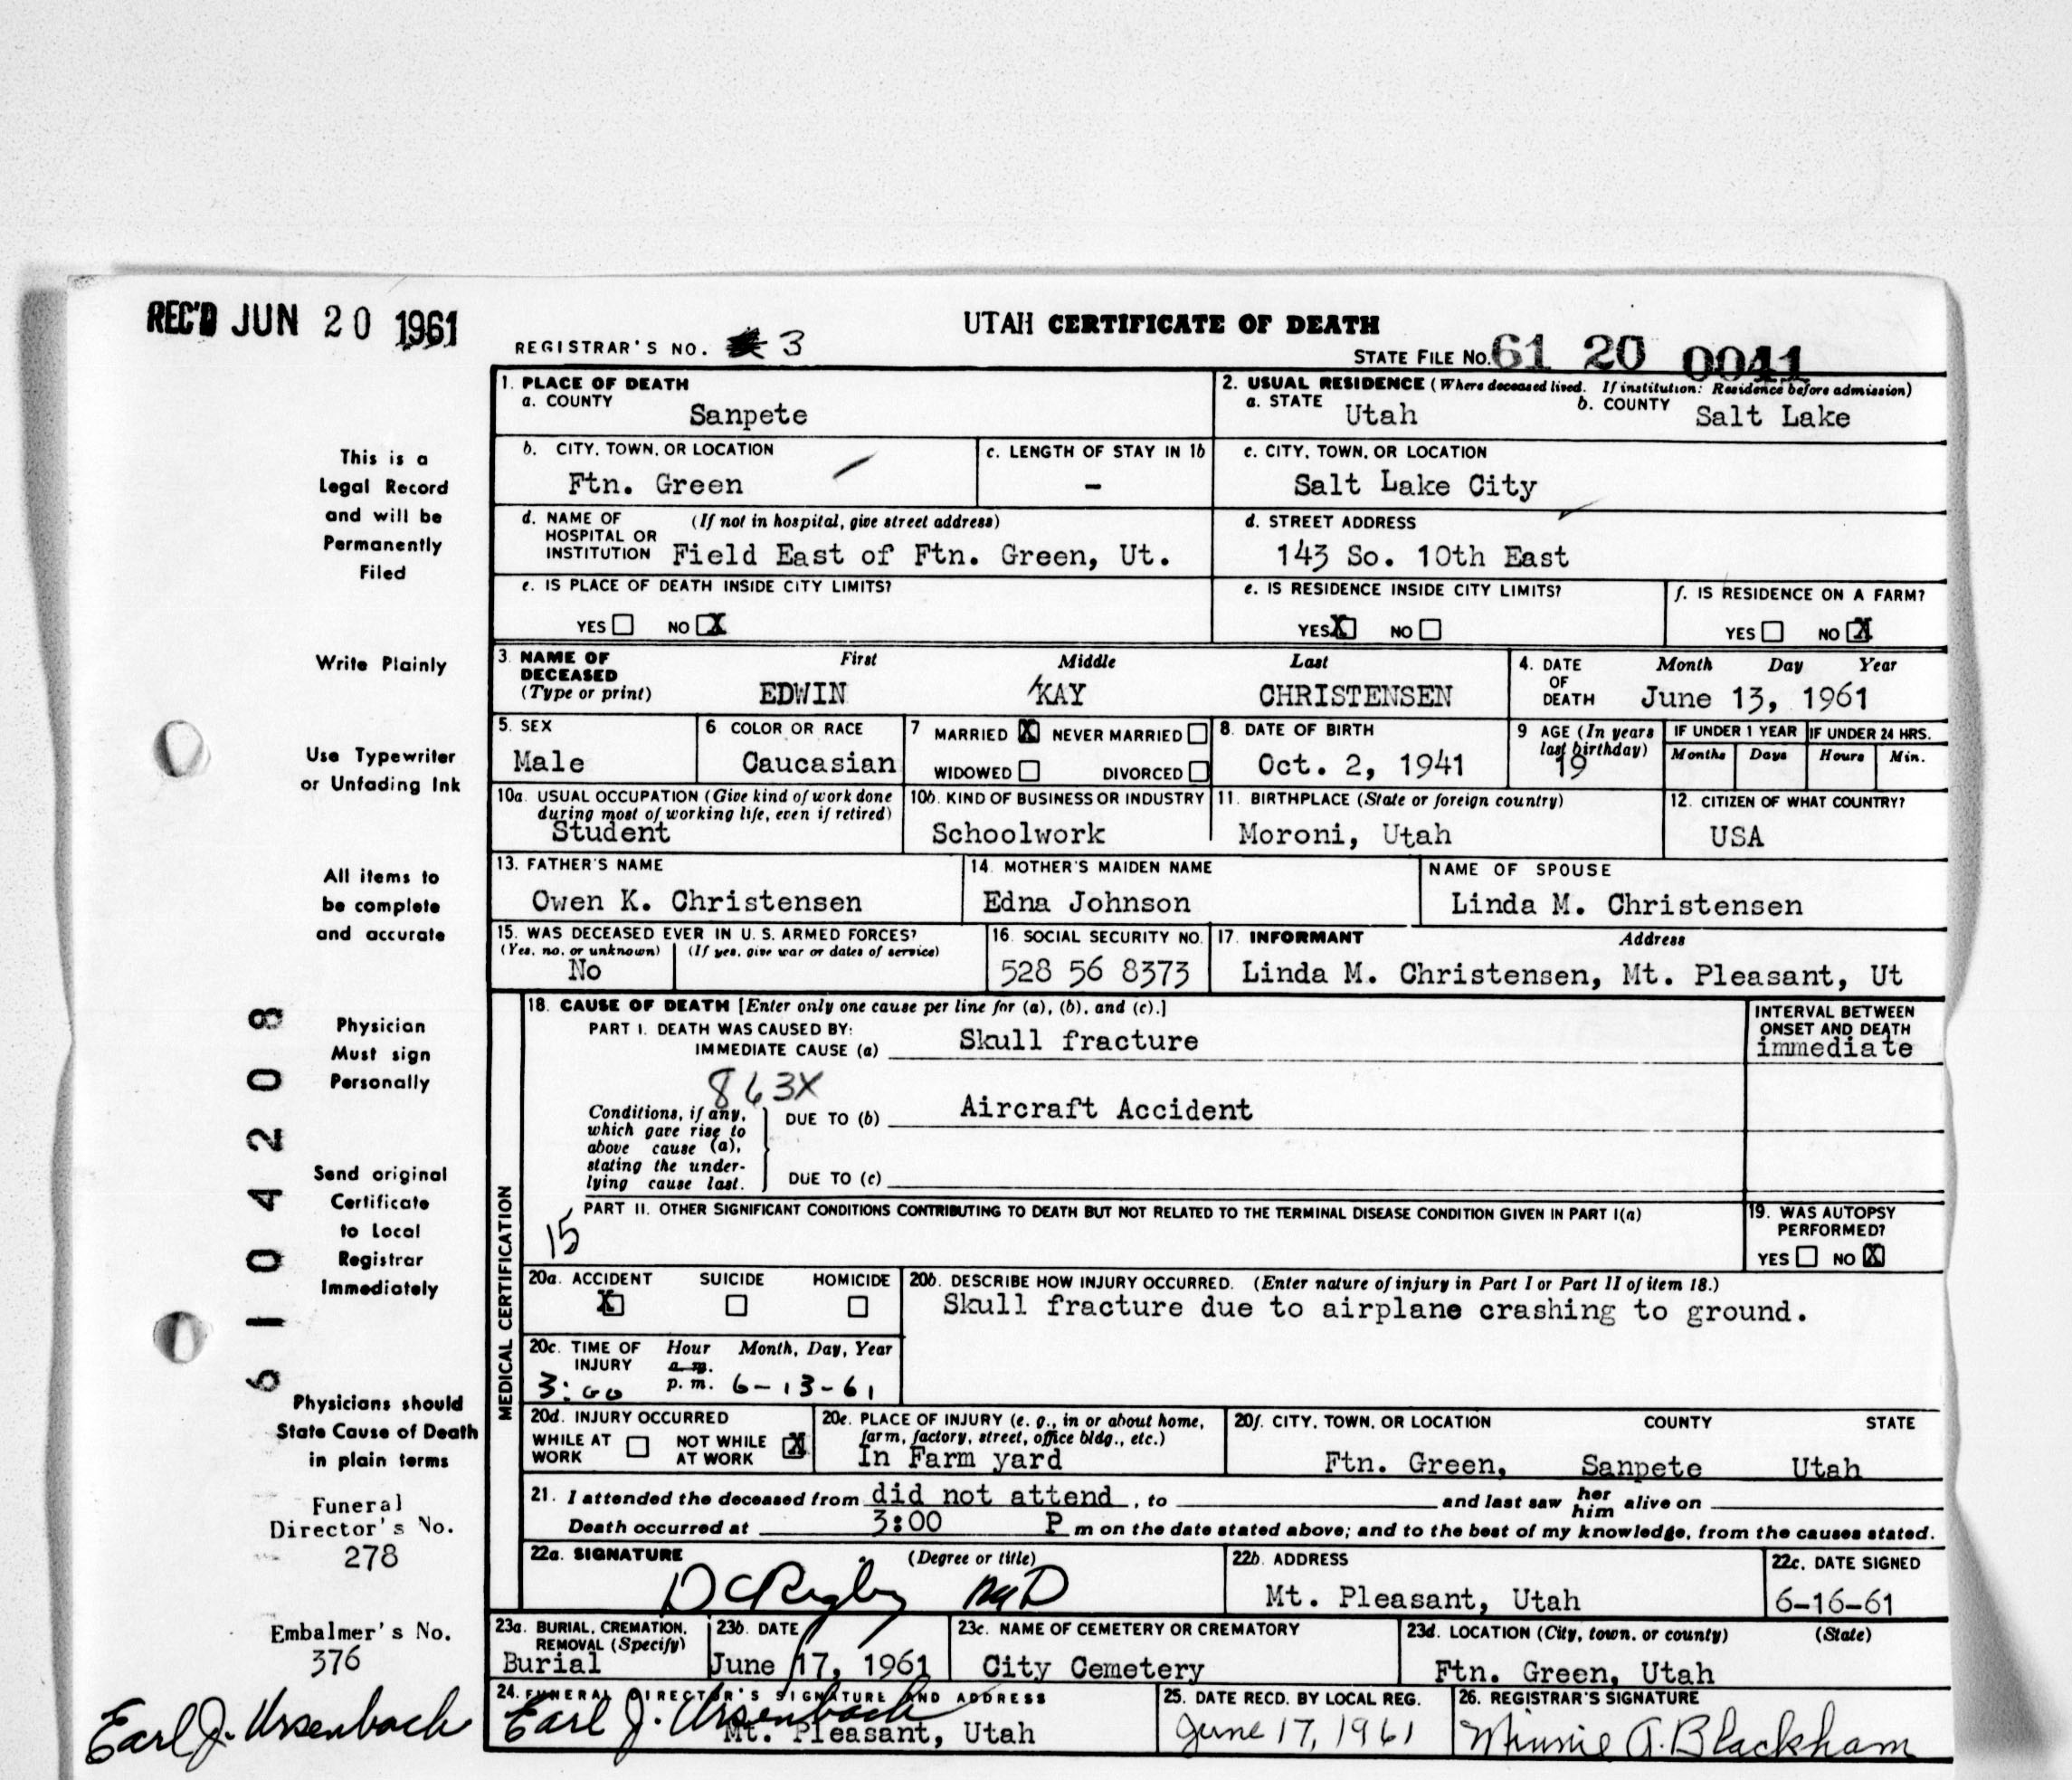 REC'D JUN 20 1961
UTAH CERTIFICATE OF DEATH
REGISTRAR'S NO. 3
STATE FILE No. 61 20 0041
1. PLACE OF DEATH
a. COUNTY
Sanpete
2. USUAL RESIDENCE (Where deceased lived. If institution: Residence before admission)
a. STATE Utah b. COUNTY Salt Lake
b. CITY, TOWN, OR LOCATION
Ftn. Green
c. LENGTH OF STAY IN 1b
-
c. CITY, TOWN, OR LOCATION
Salt Lake City
d. NAME OF HOSPITAL OR INSTITUTION (If not in hospital, give street address)
Field East of Ftn. Green, Ut.
d. STREET ADDRESS
143 So. 10th East
e. IS PLACE OF DEATH INSIDE CITY LIMITS?
YES NO X
e. IS RESIDENCE INSIDE CITY LIMITS?
YES X NO
f. IS RESIDENCE ON A FARM?
YES NO X
3. NAME OF DECEASED (Type or print)
First Middle Last
EDWIN KAY CHRISTENSEN
4. DATE OF DEATH Month Day Year
June 13, 1961
5. SEX
Male
6 COLOR OR RACE
Caucasian
7 MARRIED X NEVER MARRIED
WIDOWED DIVORCED
8. DATE OF BIRTH
Oct. 2, 1941
9 AGE (In years last birthday)
19
IF UNDER 1 YEAR
Months Days
IF UNDER 24 HRS.
Hours Min.
10a. USUAL OCCUPATION (Give kind of work done during most of working life, even if retired)
Student
10b. KIND OF BUSINESS OR INDUSTRY
Schoolwork
11. BIRTHPLACE (State or foreign country)
Moroni, Utah
12. CITIZEN OF WHAT COUNTRY?
USA
13. FATHER'S NAME
Owen K. Christensen
14. MOTHER'S MAIDEN NAME
Edna Johnson
NAME OF SPOUSE
Linda M. Christensen
15. WAS DECEASED EVER IN U. S. ARMED FORCES?
(Yes, no, or unknown) (If yes, give war or dates of service)
No
16. SOCIAL SECURITY NO.
528 56 8373
17. INFORMANT Address
Linda M. Christensen, Mt. Pleasant, Ut
MEDICAL CERTIFICATION
18. CAUSE OF DEATH [Enter only one cause per line for (a), (b), and (c).]
PART I. DEATH WAS CAUSED BY:
IMMEDIATE CAUSE (a) Skull fracture
INTERVAL BETWEEN ONSET AND DEATH
immediate
863X
Conditions, if any, which gave rise to above cause (a), stating the underlying cause last.
DUE TO (b) Aircraft Accident
DUE TO (c)
PART II. OTHER SIGNIFICANT CONDITIONS CONTRIBUTING TO DEATH BUT NOT RELATED TO THE TERMINAL DISEASE CONDITION GIVEN IN PART I(a)
15
19. WAS AUTOPSY PERFORMED?
YES NO X
20a. ACCIDENT SUICIDE HOMICIDE
X
20b. DESCRIBE HOW INJURY OCCURRED. (Enter nature of injury in Part I or Part II of item 18.)
Skull fracture due to airplane crashing to ground.
20c. TIME OF INJURY Hour Month, Day, Year
a. m.
3:00 p. m. 6-13-61
20d. INJURY OCCURRED
WHILE AT WORK NOT WHILE AT WORK X
20e. PLACE OF INJURY (e. g., in or about home, farm, factory, street, office bldg., etc.)
In Farm yard
20f. CITY, TOWN, OR LOCATION COUNTY STATE
Ftn. Green, Sanpete Utah
21. I attended the deceased from did not attend, to and last saw her him alive on
Death occurred at 3:00 P m on the date stated above; and to the best of my knowledge, from the causes stated.
22a. SIGNATURE (Degree or title)
D C Rigby MD
22b. ADDRESS
Mt. Pleasant, Utah
22c. DATE SIGNED
6-16-61
23a. BURIAL, CREMATION, REMOVAL (Specify)
Burial
23b. DATE
June 17, 1961
23c. NAME OF CEMETERY OR CREMATORY
City Cemetery
23d. LOCATION (City, town, or county) (State)
Ftn. Green, Utah
24. FUNERAL DIRECTOR'S SIGNATURE AND ADDRESS
Earl J. Ursenbach
Mt. Pleasant, Utah
25. DATE RECD. BY LOCAL REG.
June 17, 1961
26. REGISTRAR'S SIGNATURE
Minnie A. Blackham
This is a
Legal Record
and will be
Permanently
Filed
Write Plainly
Use Typewriter
or Unfading Ink
All items to
be complete
and accurate
Physician
Must sign
Personally
Send original
Certificate
to Local
Registrar
Immediately
Physicians should
State Cause of Death
in plain terms
Funeral
Director's No.
278
Embalmer's No.
376
Earl J. Ursenbach
6104208